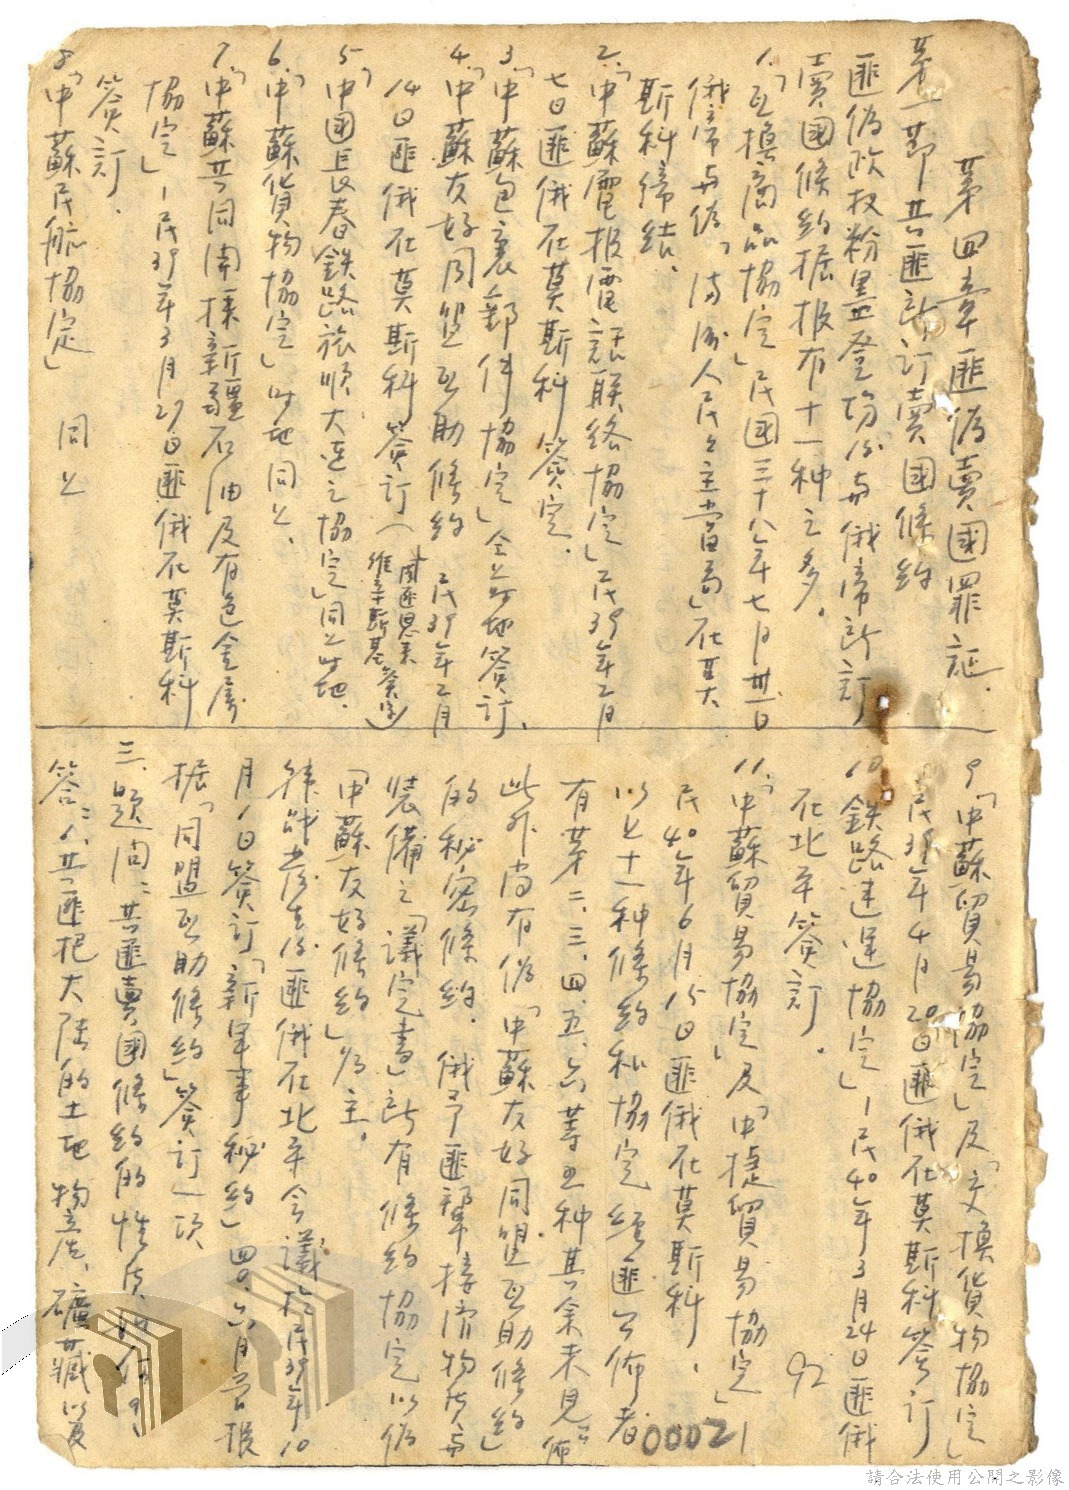 第四章 匪偽賣國罪証.
第一節 共匪所訂賣國條約
匪偽政权粉墨登場后与俄帝所訂
賣國條約据报有十一种之多。
1.「互換商品協定」民國三十八年七月卅一日
俄帝与偽「満洲人民民主當局」在莫
斯科締結、
2.「中蘇電报電話联絡協定」民39年2月
七日匪俄在莫斯科簽定.
3.「中蘇包裹郵件協定」仝上时地簽訂、
4.「中蘇友好同盟互助條約 民39年2月
14日匪俄在莫斯科簽訂(周匪恩来
維辛斯基簽字)
5.「中國長春鉄路旅順大連之協定」同上时地、
6.「中蘇貨物協定」时地同上、
7.「中蘇共同開採新疆石油及有色金属
協定」-民39年3月27日匪俄在莫斯科
簽訂.
8.「中蘇民航協定」 同上
9.「中蘇貿易協定」及「交換貨物協定」
民39年4月20日匪俄在莫斯科簽訂
10.鉄路連運協定」-民40年3月24日匪俄
在北平簽訂。
92
11.「中蘇貿易協定」及「中捷貿易協定」
民40年6月15日匪俄在莫斯科、
以上十一种條約和協定經匪公佈者
有第二、三、四、五、六等五种其余未見公佈
此外尚有偽「中蘇友好同盟互助條約」
的秘密條約. 俄予匪幫接濟物資与
裝備之「議定書」所有條約協定以偽
「中蘇友好條約」为主。
韓战發生后匪俄在北平会議於民39年10
月1日簽訂「新軍事秘約」四〇.六月曾根
据「同盟互助條約」簽訂一項
三、題問:共匪賣國條約的性质如何?
答:1.共匪把大陆的土地 物産、礦藏以及
00021
請合法使用公開之影像